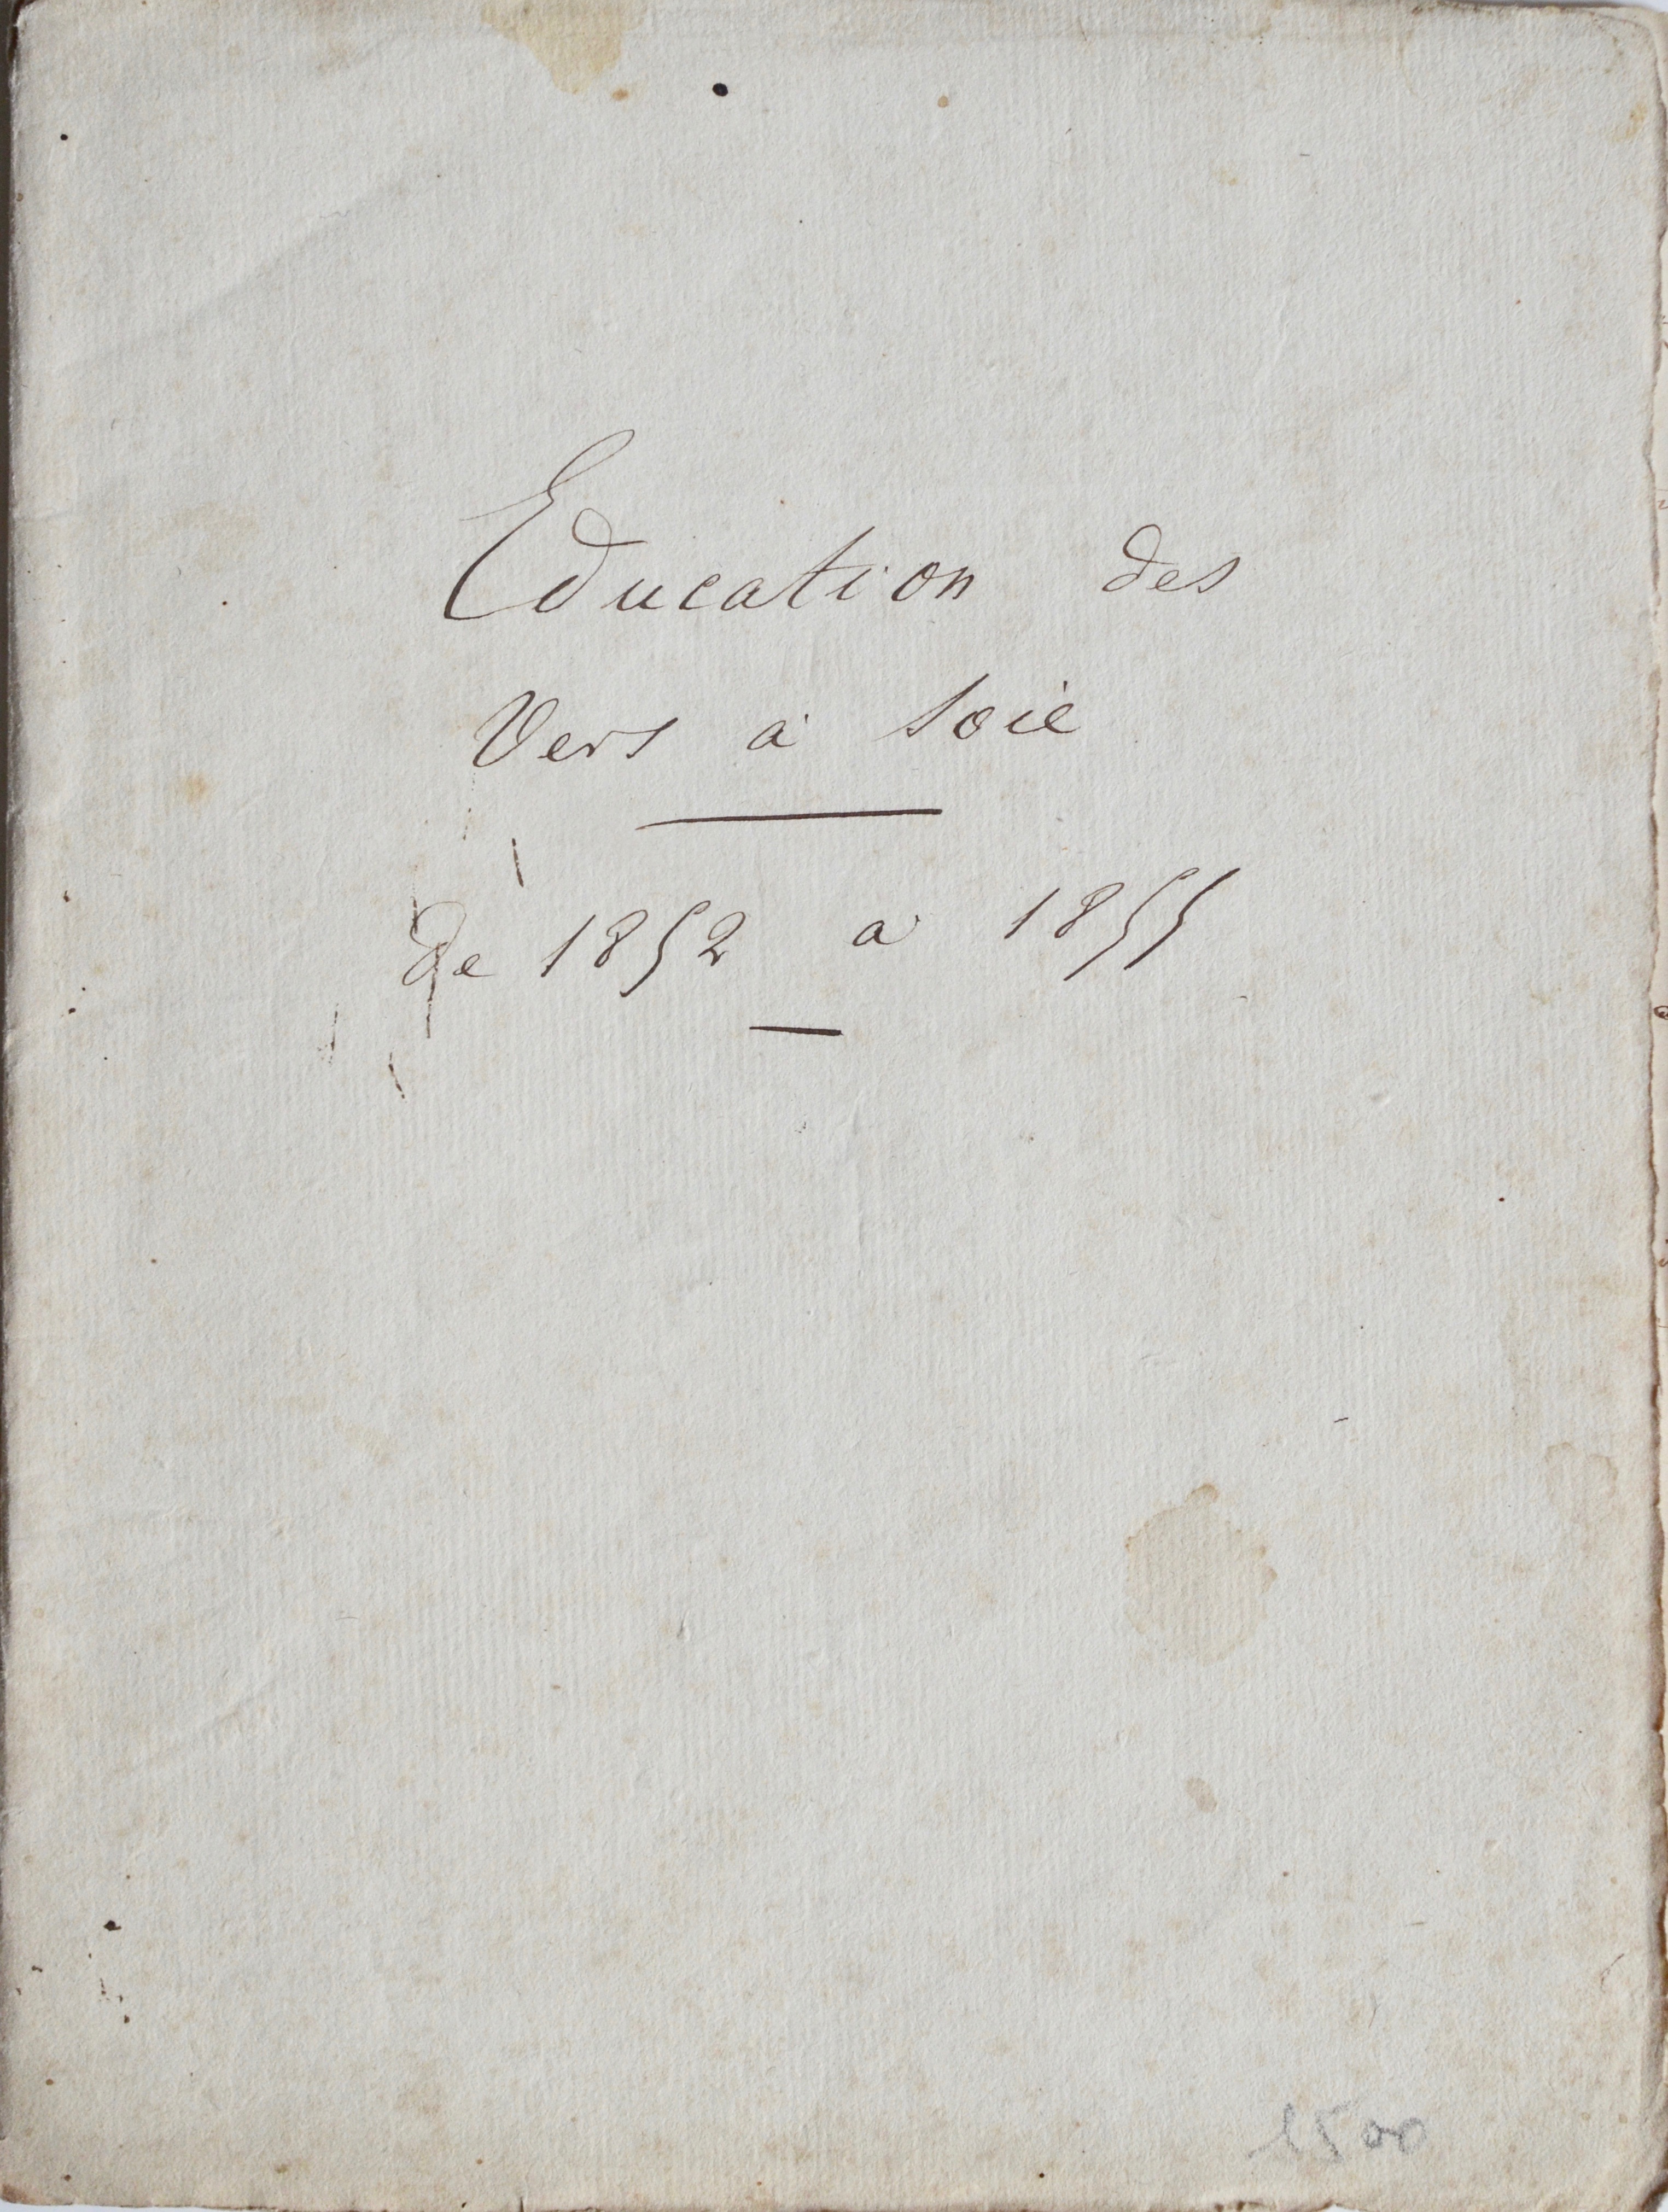 Education des
Vers à soie
De 1852 a 1855
1500